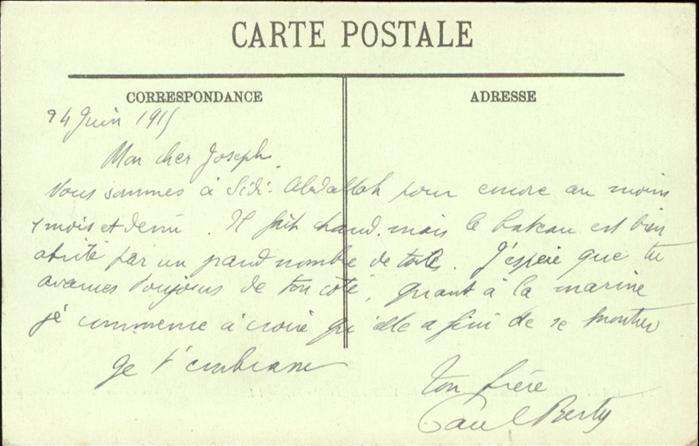 CARTE POSTALE
CORRESPONDANCE
ADRESSE
24 Juin 1915
Mon cher Joseph,
Vous sommes à Sidi-Abdallah pour encore au moins
1 mois et demi. Il fait chaud, mais le bateau est bien
abrité par un grand nombre de toiles. J'espère que tu
avances toujours de ton côté, quant à la marine
je commence à croire qu'elle a fini de se montrer
Je t'embrasse
ton frère
Paul Berty